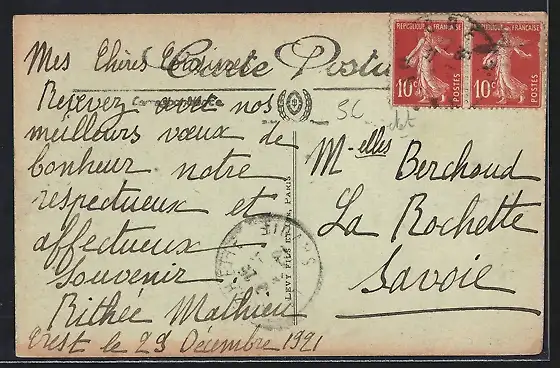 Carte Postale
Correspondance
Mes Chères Cousines
Recevez avec nos
meilleurs vœux de
bonheur notre
respectueux et
affectueux
souvenir
Mathieu
Crest le 29 Décembre 1921
LEVY FILS ET CIE, PARIS
REPUBLIQUE FRANÇAISE
10c
REPUBLIQUE FRANÇAISE
10c
M-elles Berchoud
La Rochette
Savoie